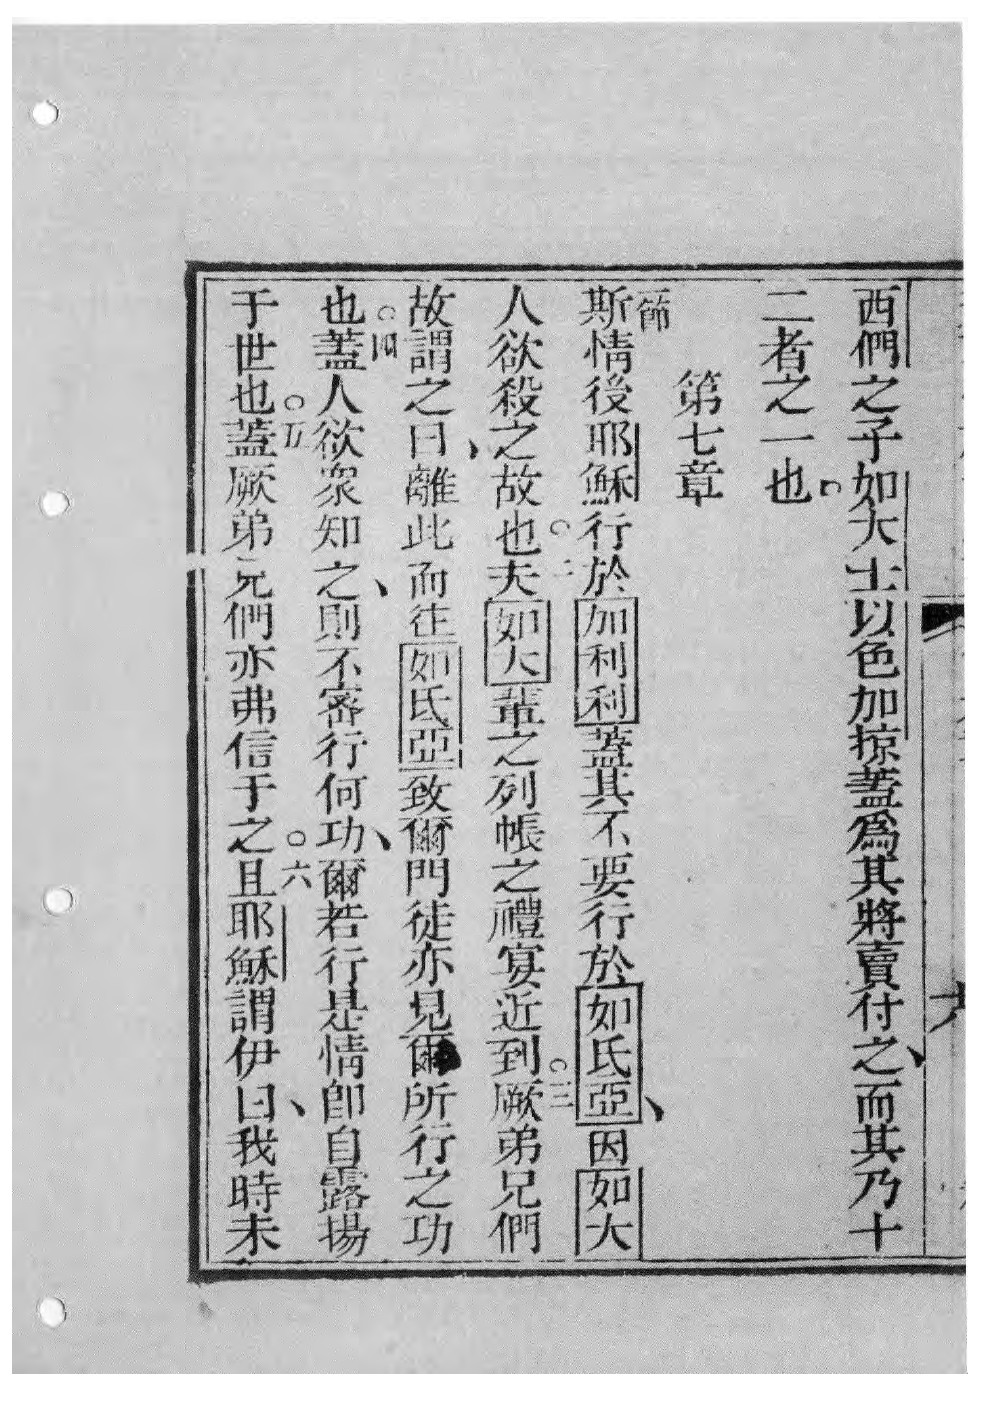 西們之子如大士以色加掠蓋爲其將賣付之、而其乃十
二者之一也。
第七章
一節斯情後耶穌行於加利利蓋其不要行於如氏亞、因如大
人欲殺之故也。二夫如大輩之列帳之禮宴近到。三厥弟兄們
故謂之曰、離此而往如氏亞致爾門徒亦見爾所行之功
也。四蓋人欲衆知之、則不審行何功、爾若行是情卽自露揚
于世也。五蓋厥弟兄們亦弗信于之。六且耶穌謂伊曰、我時未